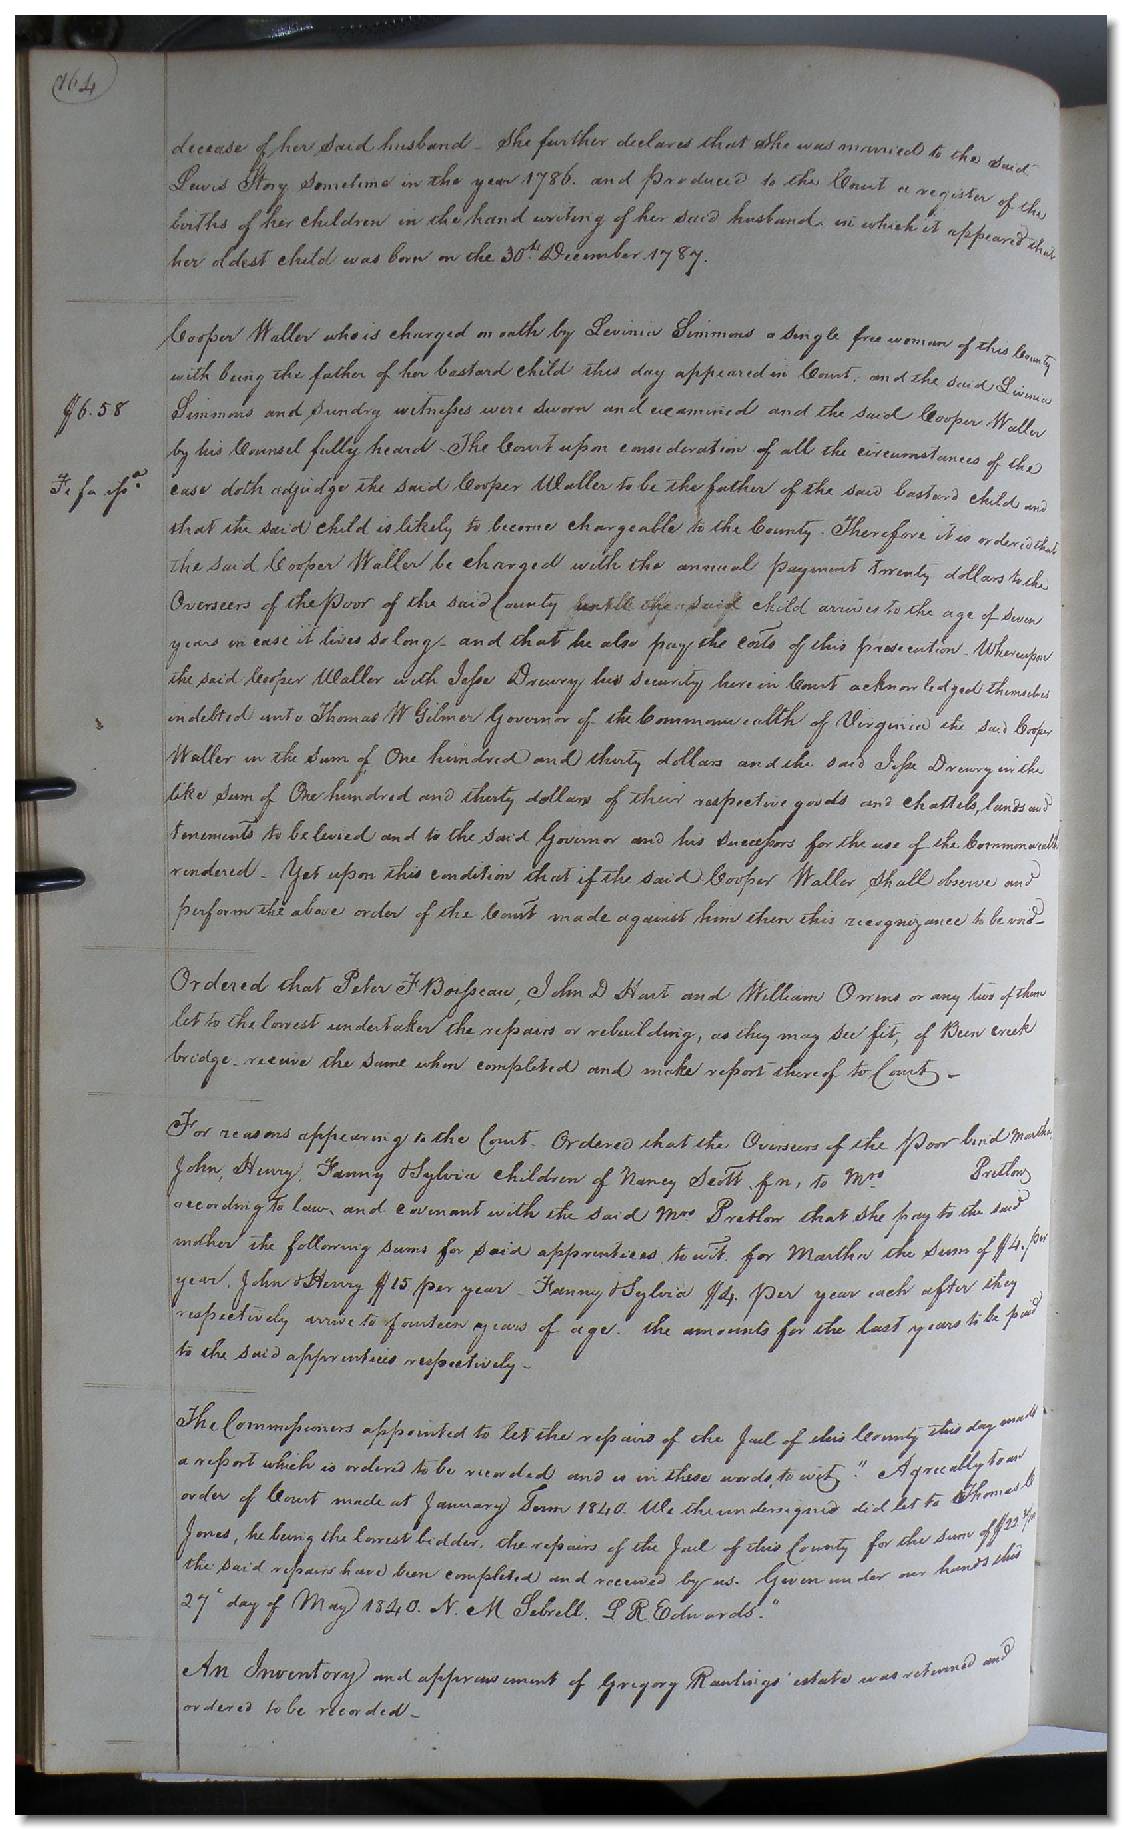 164
decease of her said husband - She further declares that she was married to the said
Lewis Story sometime in the year 1786. and produced to the Court a register of the
births of her children in the hand writing of her said husband in which it appeared that
her oldest child was born on the 30th December 1787.
Cooper Waller who is charged on oath by Levinia Simmons a single free woman of this County
with being the father of her bastard child this day appeared in Court. and the said Livinia
$6.58
Simmons and sundry witnesses were sworn and examined and the said Cooper Waller
by his Counsel fully heard - The Court upon consideration of all the circumstances of the
Fi fa
case doth adjudge the said Cooper Waller to be the father of the said bastard child and
that the said child is likely to become chargeable to the County. Therefore it is ordered that
the said Cooper Waller be charged with the annual payment twenty dollars to the
Overseers of the Poor of the said County untill the said child arrives to the age of seven
years in case it lives so long - and that he also pay the costs of this prosecution - Whereupon
the said Cooper Waller with Jesse Drewry his security here in Court acknowledged themselves
indebted unto Thomas W Gilmer Governor of the Commonwealth of Virginia the said Cooper
Waller in the sum of One hundred and thirty dollars and the said Jesse Drewry in the
like sum of One hundred and thirty dollars of their respective goods and chattels, lands and
tenements to be levied and to the said Governor and his successors for the use of the Commonwealth
rendered - Yet upon this condition that if the said Cooper Waller shall observe and
perform the above order of the Court made against him then this recognizance to be void -
Ordered that Peter F Boisseau, John D Hart and William Owens or any two of them
let to the lowest undertaker the repairs or rebuilding, as they may see fit, of Been creek
bridge - receive the same when completed and make report thereof to Court -
For reasons appearing to the Court - Ordered that the Overseers of the Poor bind Martha,
John, Henry, Fanny & Sylvia children of Nancy Scott f n, to Mrs Pretlow
according to law, and covenant with the said Mrs Pretlow that she pay to the said
mother the following sums for said apprentices, to wit. for Martha the sum of $4. per
year, John & Henry $15 per year - Fanny & Sylvia $4. per year each after they
respectively arrive to fourteen years of age. the amounts for the last years to be paid
to the said apprentices respectively -
The Commissioners appointed to let the repairs of the Jail of this County this day made
a report which is ordered to be recorded and is in these words, to wit, " Agreeally to an
order of Court made at January Term 1840. We the undersigned did let to Thomas
Jones, he being the lowest bidder, the repairs of the Jail of this County for the sum of $22
the said repairs have been completed and received by us. Given under our hands this
27' day of May 1840. N. M Sebrell. L R. Edwards."
An Inventory and appraisement of Gregory Rawlings' estate was returned and
ordered to be recorded -